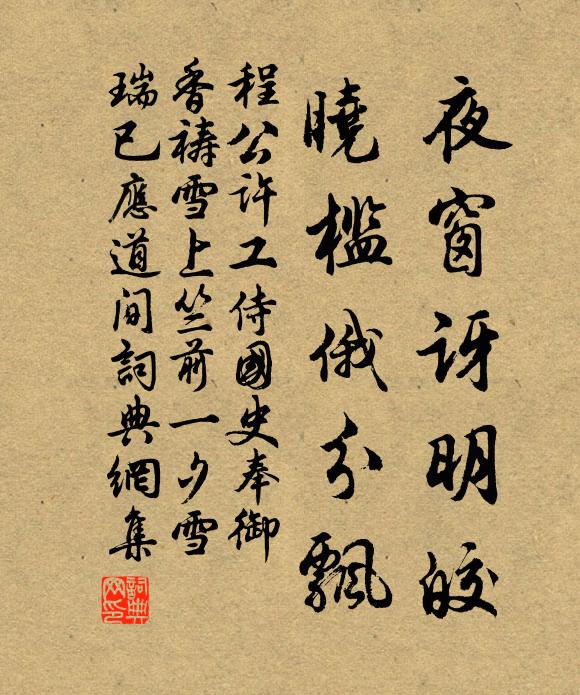 夜窗訝明皎
曉檻俄分飄
程公許工侍國史奉御
香禱雪上竺前一夕雪
瑞已應道間詞典網集
詞典网印